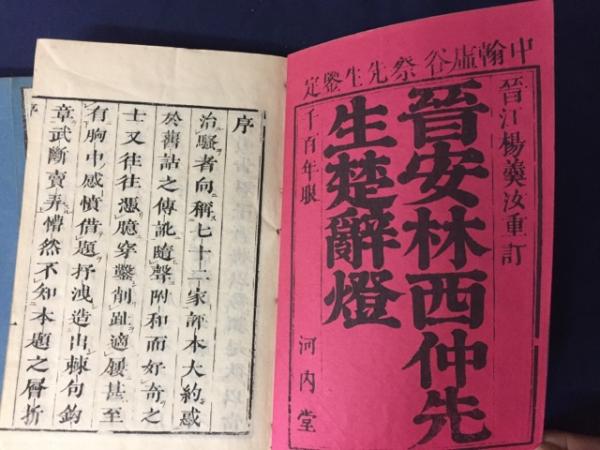 中翰虛谷蔡先生鑒定
晉江楊羹汝重訂
晉安林西仲先
生楚辭燈
千百年眼
河内堂
序
治騷者向稱七十二家評本大約惑
於舊詁之傳訛隨聲附和而好奇之
士又往往憑臆穿鑿削趾適屨甚至
有胸中感憤借題抒洩造出棘句鈎
章武斷賣弄懵然不知本題之層折
序
一